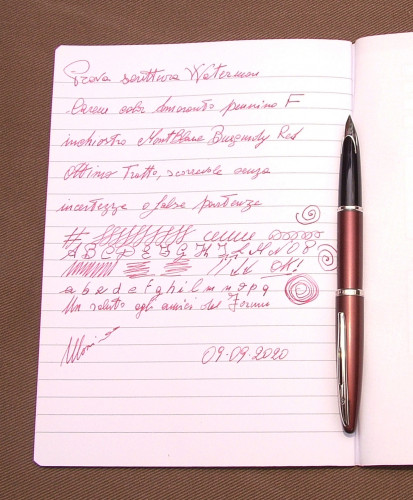 Prova scrittura Waterman
Carene color Amaranto pennino F
inchiostro MontBlanc Burgundy Red
Ottimo Tratto, scorrevole senza
incertezze o false partenze
# eeeee
A B C D E F G H I L M N O P
// LL OK!
a b c d e f g h i l m n o p q
Un saluto agli amici del Forum
09-09-2020